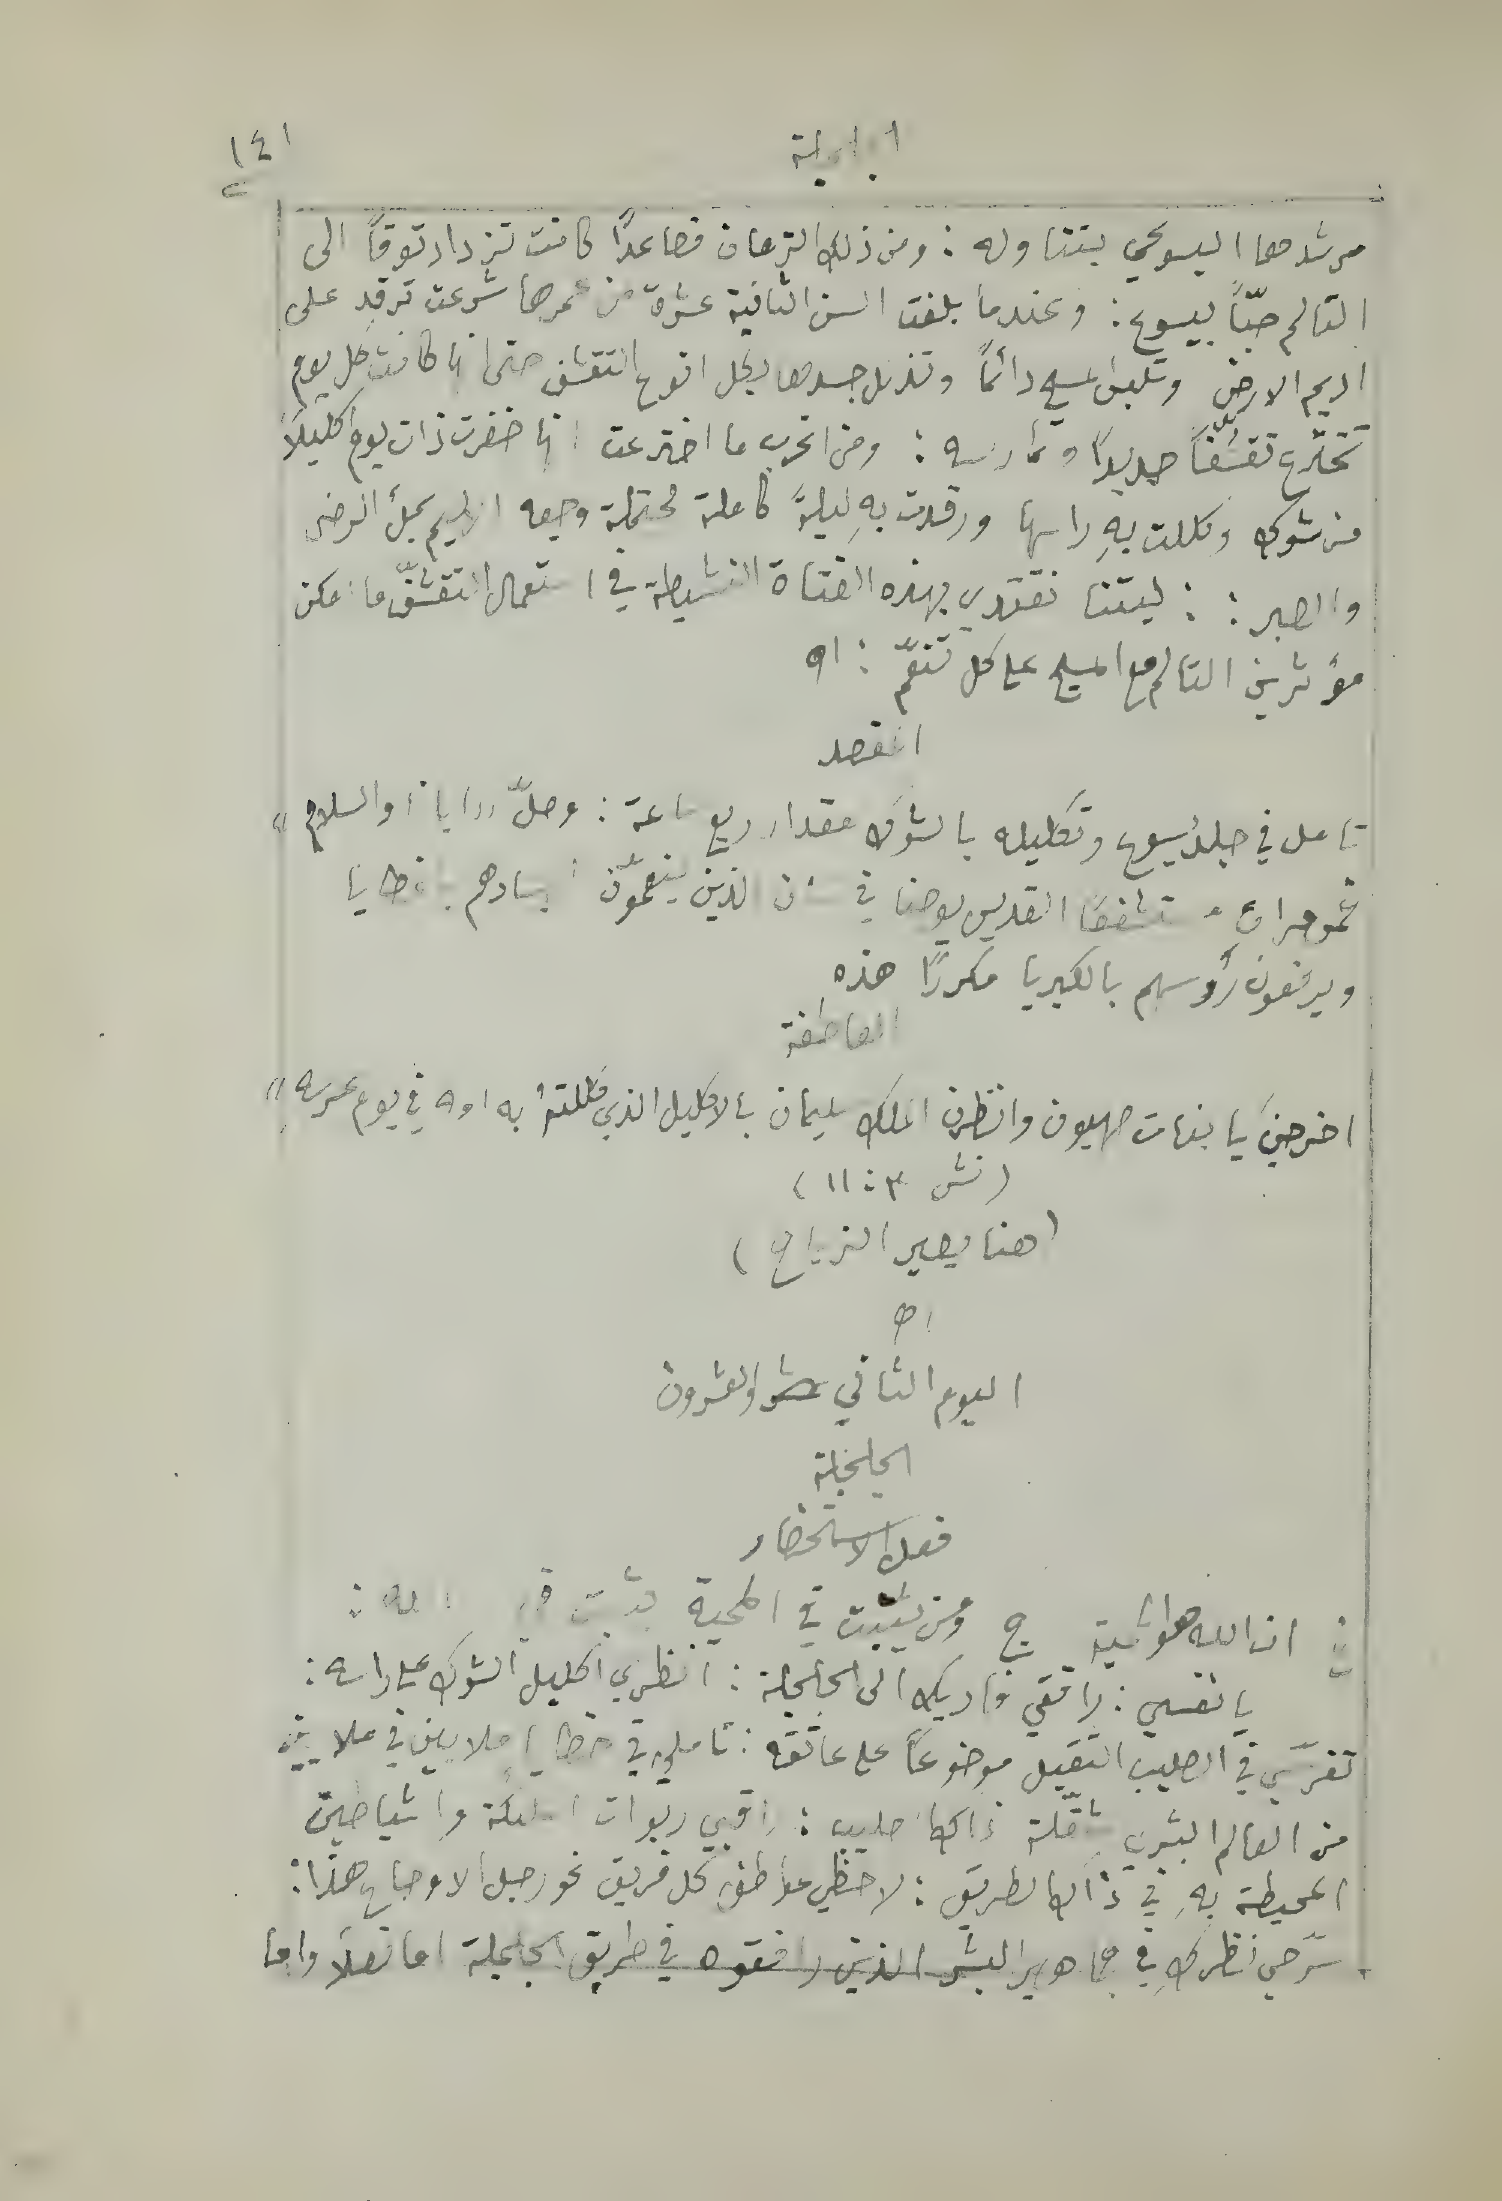 ١٤١
مرشدها اليسوعي بتناوله : ومن ذلك الزمان فصاعدًا كانت تزداد توقاً الى
التالم حبّاً بيسوع : وعندما بلغت السن الثانية عشرة من عمرها شرعت ترقد على
اديم الارض وتلبس المسح دائمًا وتذلل جسدها بكل انوع التقشف حتى انها كانت كل يوم
تخترع تقشّفاً جديدًا وتمارسه : ومن اغرب ما اخترعت انها ضفرت ذات يوم اكليلاً
من شوك وكللت بهِ راسها ورقدت بهِ ليلةً كاملة محتملة وجعه الاليم بملأ الرضى
والصبر : : ليتنا نقتدي بهذه الفتاة النشيطة في استعمال التقشّف ما امكن
مؤثرين التالم مع المسيح على كل تنعّم : اه
القصد
تامل في جلد يسوع وتكليله بالشوك مقدار ربع ساعة : وصلّ الابانا والسلام "
خمو مرات مستشفعًا القديس يوحنا في شان الذين ينعّمون اجسادهم بالخطايا
ويرفعون رؤوسهم بالكبريا مكررًا هذه
العاطفة
اخرجنَ يا بنات صهيون وانظرن الملك سليمان بالاكليل الذي كللتهُ به امه في يوم عرسهِ "
(نش ٣ : ١١)
(هنا يصير الزياح)
اه
اليوم الثاني والعشرون
الجلجلة
فعل الاستحضار
ان الله هو المحبة ج ومن يثبت في المحبة يثبت في الله :
يا نفسي : رافقي فاديك الى الجلجلة : انظري اكليل الشوك على راسه :
تفرّسي في الصليب الثقيل موضوعًا على عاتقه : تاملي في خطايا ملايين في ملايين
من العالم البشري مثقّلة ذاك الصليب : راقبي ربوات الملئكة والشياطين
المحيطة بهِ في ذاك الطريق : لاحظي عواطف كل فريق نحو رجل الاوجاع هذا :
سرّحي نظركِ في جماهير البشر الذين رافقوه في طريق الجلجلة اما فعلاً واما